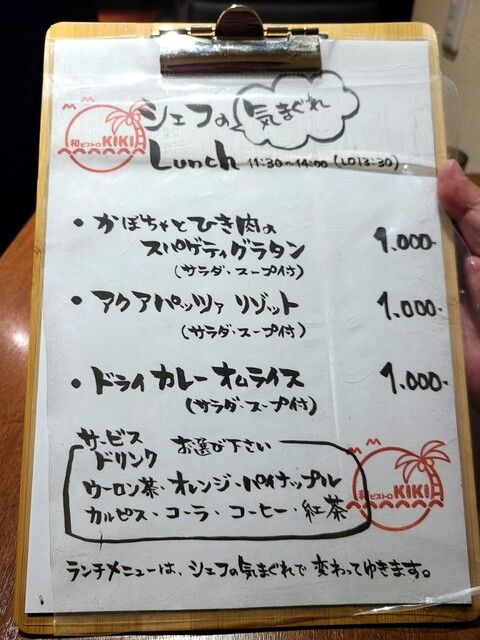 シェフの気まぐれ
和ビストロ KIKI
Lunch 11:30～14:00 (LO13:30)
・かぼちゃとひき肉の
スパゲティグラタン 1,000-
(サラダ・スープ付)
・アクアパッツァ リゾット 1,000-
(サラダ・スープ付)
・ドライカレーオムライス 1,000-
(サラダ・スープ付)
サービス
ドリンク お選び下さい
ウーロン茶・オレンジ・パイナップル
カルピス・コーラ・コーヒー・紅茶
和ビストロ KIKI
ランチメニューは、シェフの気まぐれで変わってゆきます。